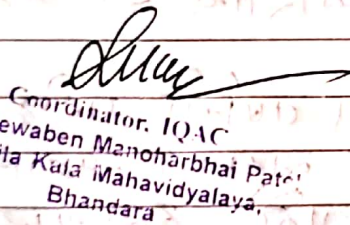 Coordinator, IQAC
ewaben Manoharbhai Patel
la Kala Mahavidyalaya,
Bhandara